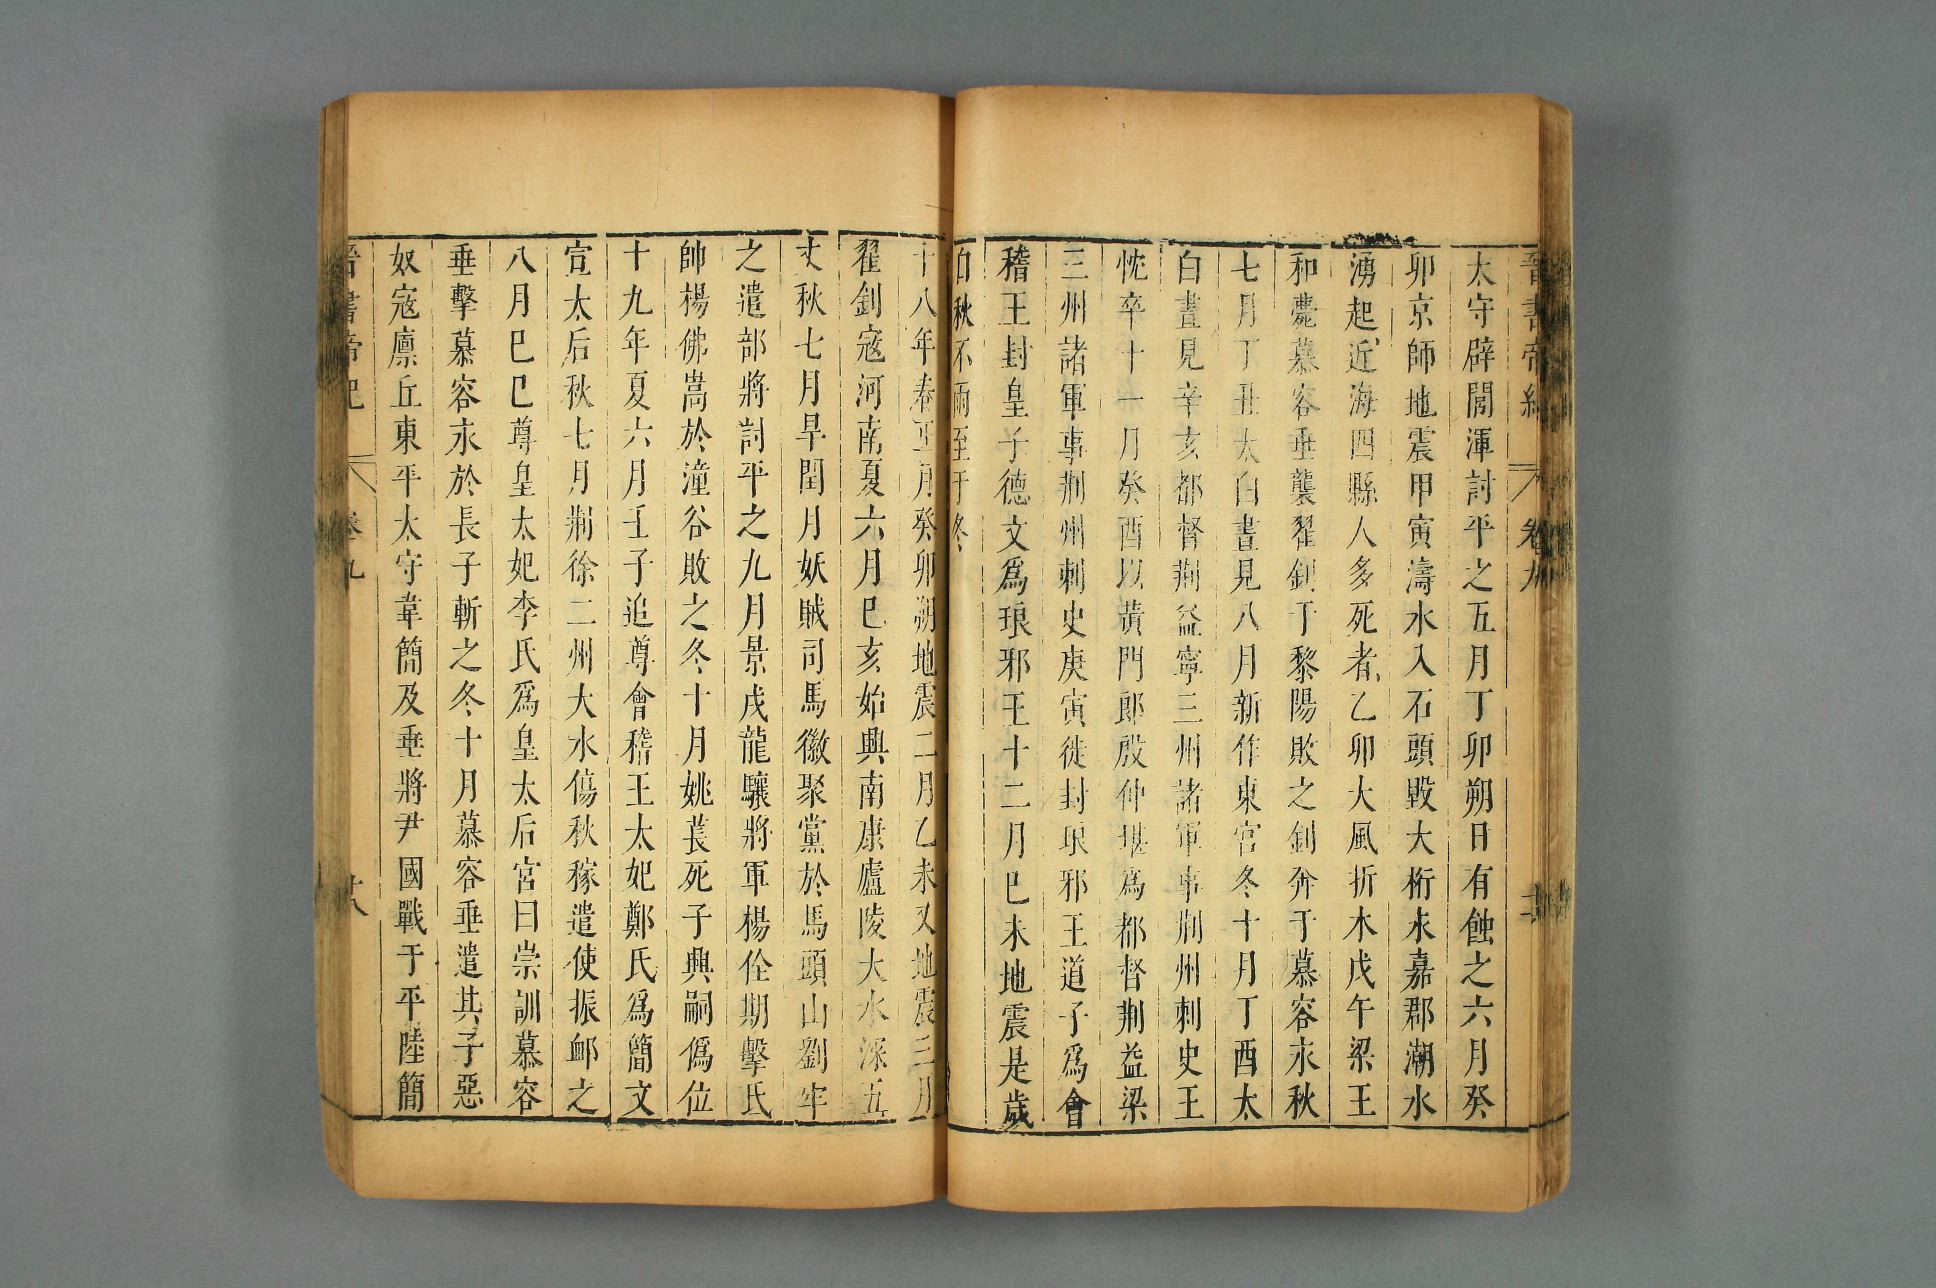 晉書帝紀 卷九
太守辟閭渾討平之五月丁卯朔日有蝕之六月癸
卯京師地震甲寅濤水入石頭毀大桁永嘉郡潮水
湧起近海四縣人多死者乙卯大風折木戊午梁王
和薨慕容垂襲翟釗于黎陽敗之釗奔于慕容永秋
七月丁丑太白晝見八月新作東宮冬十月丁酉太
白晝見辛亥都督荆益寧三州諸軍事荆州刺史王
忱卒十一月癸酉以黃門郎殷仲堪爲都督荆益梁
三州諸軍事荆州刺史庚寅徙封琅邪王道子爲會
稽王封皇子德文爲琅邪王十二月巳未地震是歲
自秋不雨至于冬
十八年春正月癸卯朔地震二月乙未又地震三月
翟釗寇河南夏六月巳亥始興南康廬陵大水深五
丈秋七月旱閏月妖賊司馬徽聚黨於馬頭山劉牢
之遣部將討平之九月景戌龍驤將軍楊佺期擊氐
帥楊佛嵩於潼谷敗之冬十月姚萇死子興嗣僞位
十九年夏六月壬子追尊會稽王太妃鄭氏爲簡文
宣太后秋七月荆徐二州大水傷秋稼遣使振䘏之
八月巳巳尊皇太妃李氏爲皇太后宮曰崇訓慕容
垂擊慕容永於長子斬之冬十月慕容垂遣其子惡
奴寇廪丘東平太守韋簡及垂將尹國戰于平陸簡
晉書帝紀 卷九 十八